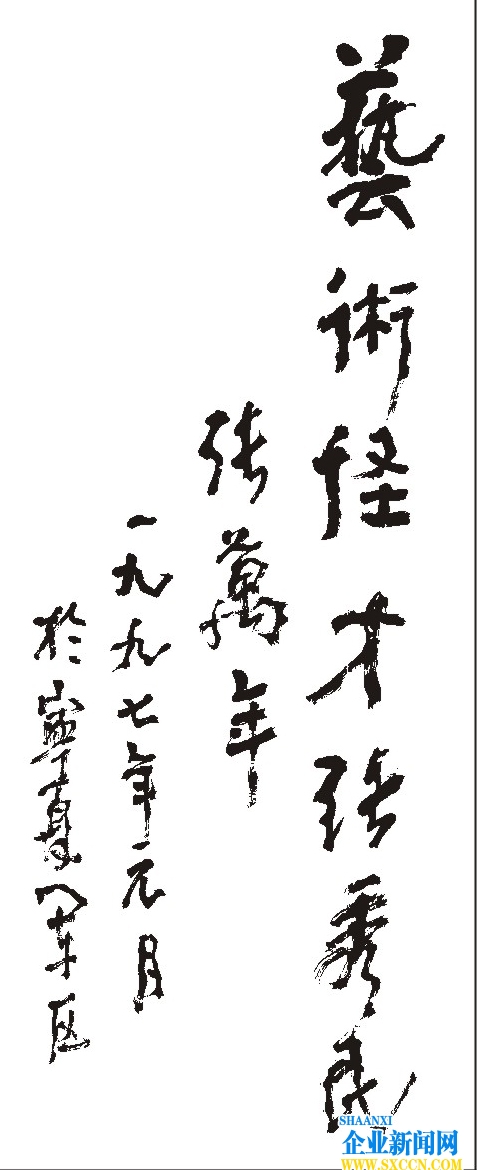 藝術怪才張秀民
張萬年
一九九七年元月
於寧夏軍区
SHAANXI
企业新闻网
WWW.SXCCN.COM